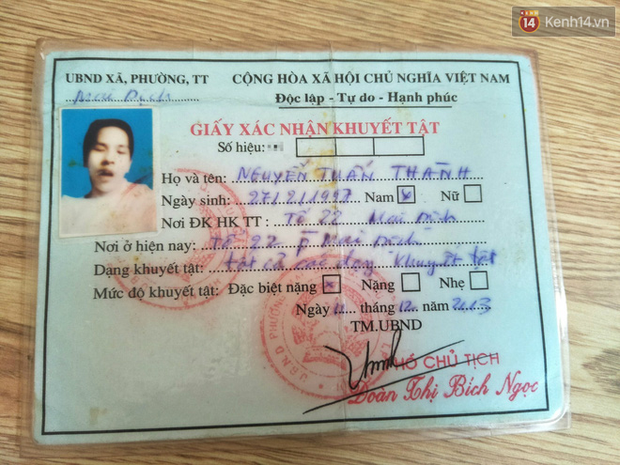 14 Kenh14.vn
UBND XÃ, PHƯỜNG, TT CỘNG HÒA XÃ HỘI CHỦ NGHĨA VIỆT NAM
Mai Dịch Độc lập - Tự do - Hạnh phúc
GIẤY XÁC NHẬN KHUYẾT TẬT
Số hiệu:
Họ và tên: NGUYỄN TUẤN THÀNH
Ngày sinh: 27/2/1997 Nam x Nữ
Nơi ĐK HK TT: Tổ 22 Mai Dịch
Nơi ở hiện nay: Tổ 22 P Mai Dịch
Dạng khuyết tật: tất cả các dạng khuyết tật
Mức độ khuyết tật: Đặc biệt nặng x Nặng Nhẹ
Ngày 11 tháng 12 năm 2013
TM.UBND
PHÓ CHỦ TỊCH
Đoàn Thị Bích Ngọc